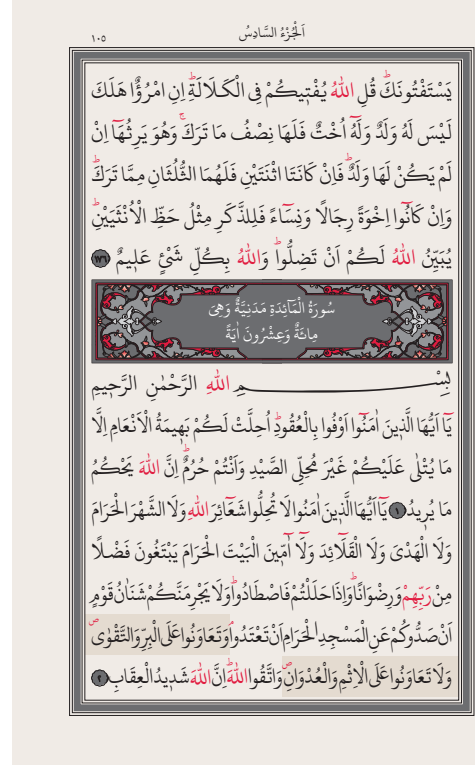 اَلْجُزْءُ السَّادِسُ
١٠٥
يَسْتَفْتُونَكَۜ قُلِ اللّٰهُ يُفْت۪يكُمْ فِي الْكَلَالَةِۜ اِنِ امْرُؤٌا هَلَكَ
لَيْسَ لَهُ وَلَدٌ وَلَهُٓ اُخْتٌ فَلَهَا نِصْفُ مَا تَرَكَۚ وَهُوَ يَرِثُهَٓا اِنْ
لَمْ يَكُنْ لَهَا وَلَدٌۜ فَاِنْ كَانَتَا اثْنَتَيْنِ فَلَهُمَا الثُّلُثَانِ مِمَّا تَرَكَۜ
وَاِنْ كَانُٓوا اِخْوَةً رِجَالًا وَنِسَٓاءً فَلِلذَّكَرِ مِثْلُ حَظِّ الْاُنْثَيَيْنِۜ
يُبَيِّنُ اللّٰهُ لَكُمْ اَنْ تَضِلُّواۜ وَاللّٰهُ بِكُلِّ شَيْءٍ عَل۪يمٌ ﴿١٧٦﴾
سُورَةُ الْمَٓائِدَةِ مَدَنِيَّةٌ وَهِيَ
مِائَةٌ وَعِشْرُونَ اٰيَةً
بِسْمِ اللّٰهِ الرَّحْمٰنِ الرَّح۪يمِ
يَٓا اَيُّهَا الَّذ۪ينَ اٰمَنُٓوا اَوْفُوا بِالْعُقُودِۜ اُحِلَّتْ لَكُمْ بَه۪يمَةُ الْاَنْعَامِ اِلَّا
مَا يُتْلٰى عَلَيْكُمْ غَيْرَ مُحِلِّي الصَّيْدِ وَاَنْتُمْ حُرُمٌۜ اِنَّ اللّٰهَ يَحْكُمُ
مَا يُر۪يدُ ﴿١﴾ يَٓا اَيُّهَا الَّذ۪ينَ اٰمَنُوا لَا تُحِلُّوا شَعَٓائِرَ اللّٰهِ وَلَا الشَّهْرَ الْحَرَامَ
وَلَا الْهَدْيَ وَلَا الْقَلَٓائِدَ وَلَٓا اٰمّ۪ينَ الْبَيْتَ الْحَرَامَ يَبْتَغُونَ فَضْلًا
مِنْ رَبِّهِمْ وَرِضْوَانًاۜ وَاِذَا حَلَلْتُمْ فَاصْطَادُواۜ وَلَا يَجْرِمَنَّكُمْ شَنَاٰنُ قَوْمٍ
اَنْ صَدُّوكُمْ عَنِ الْمَسْجِدِ الْحَرَامِ اَنْ تَعْتَدُواۢ وَتَعَاوَنُوا عَلَى الْبِرِّ وَالتَّقْوٰىۖ
وَلَا تَعَاوَنُوا عَلَى الْاِثْمِ وَالْعُدْوَانِۖ وَاتَّقُوا اللّٰهَۜ اِنَّ اللّٰهَ شَد۪يدُ الْعِقَابِ ﴿٢﴾